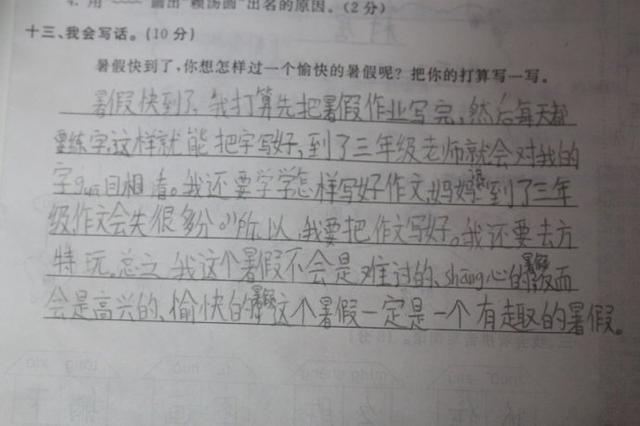 4. 用 画出"颊汤圆"出名的原因。(2分)
十三、我会写话。(10分)
暑假快到了,你想怎样过一个愉快的暑假呢?把你的打算写一写。
暑假快到了,我打算先把暑假作业写完,然后每天都
要练字,这样就能把字写好,到了三年级老师就会对我的
字gua目相看。我还要学学怎样写好作文,妈妈说"到了三年
级作文会失很多分。"所以,我要把作文写好。我还要去方
特玩。总之,我这个暑假不会是难过的、shang心的暑假,反而
会是高兴的、愉快的暑假,这个暑假一定是一个有趣的暑假。